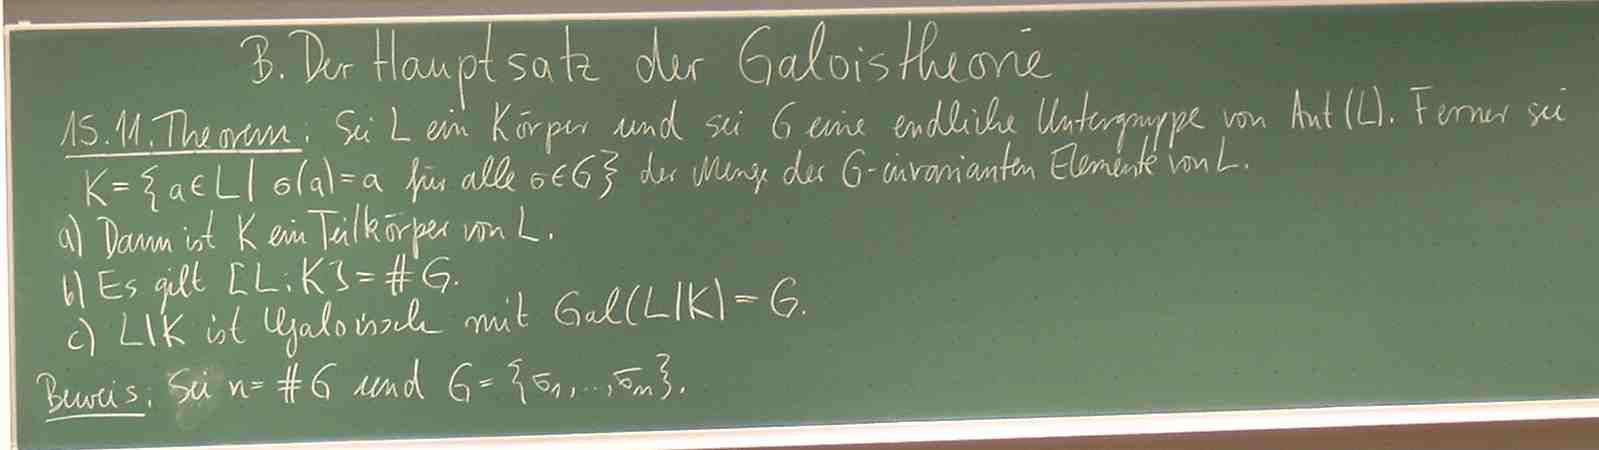 B. Der Hauptsatz der Galoistheorie
15.11. Theorem: Sei L ein Körper und sei G eine endliche Untergruppe von Aut(L). Ferner sei
K = {a ∈ L | σ(a) = a für alle σ ∈ G} der Menge der G-invarianten Elemente von L.
a) Dann ist K ein Teilkörper von L.
b) Es gilt [L:K] = #G.
c) L|K ist Galoissch mit Gal(L|K) = G.
Beweis: Sei n = #G und G = {σ1, ..., σn}.